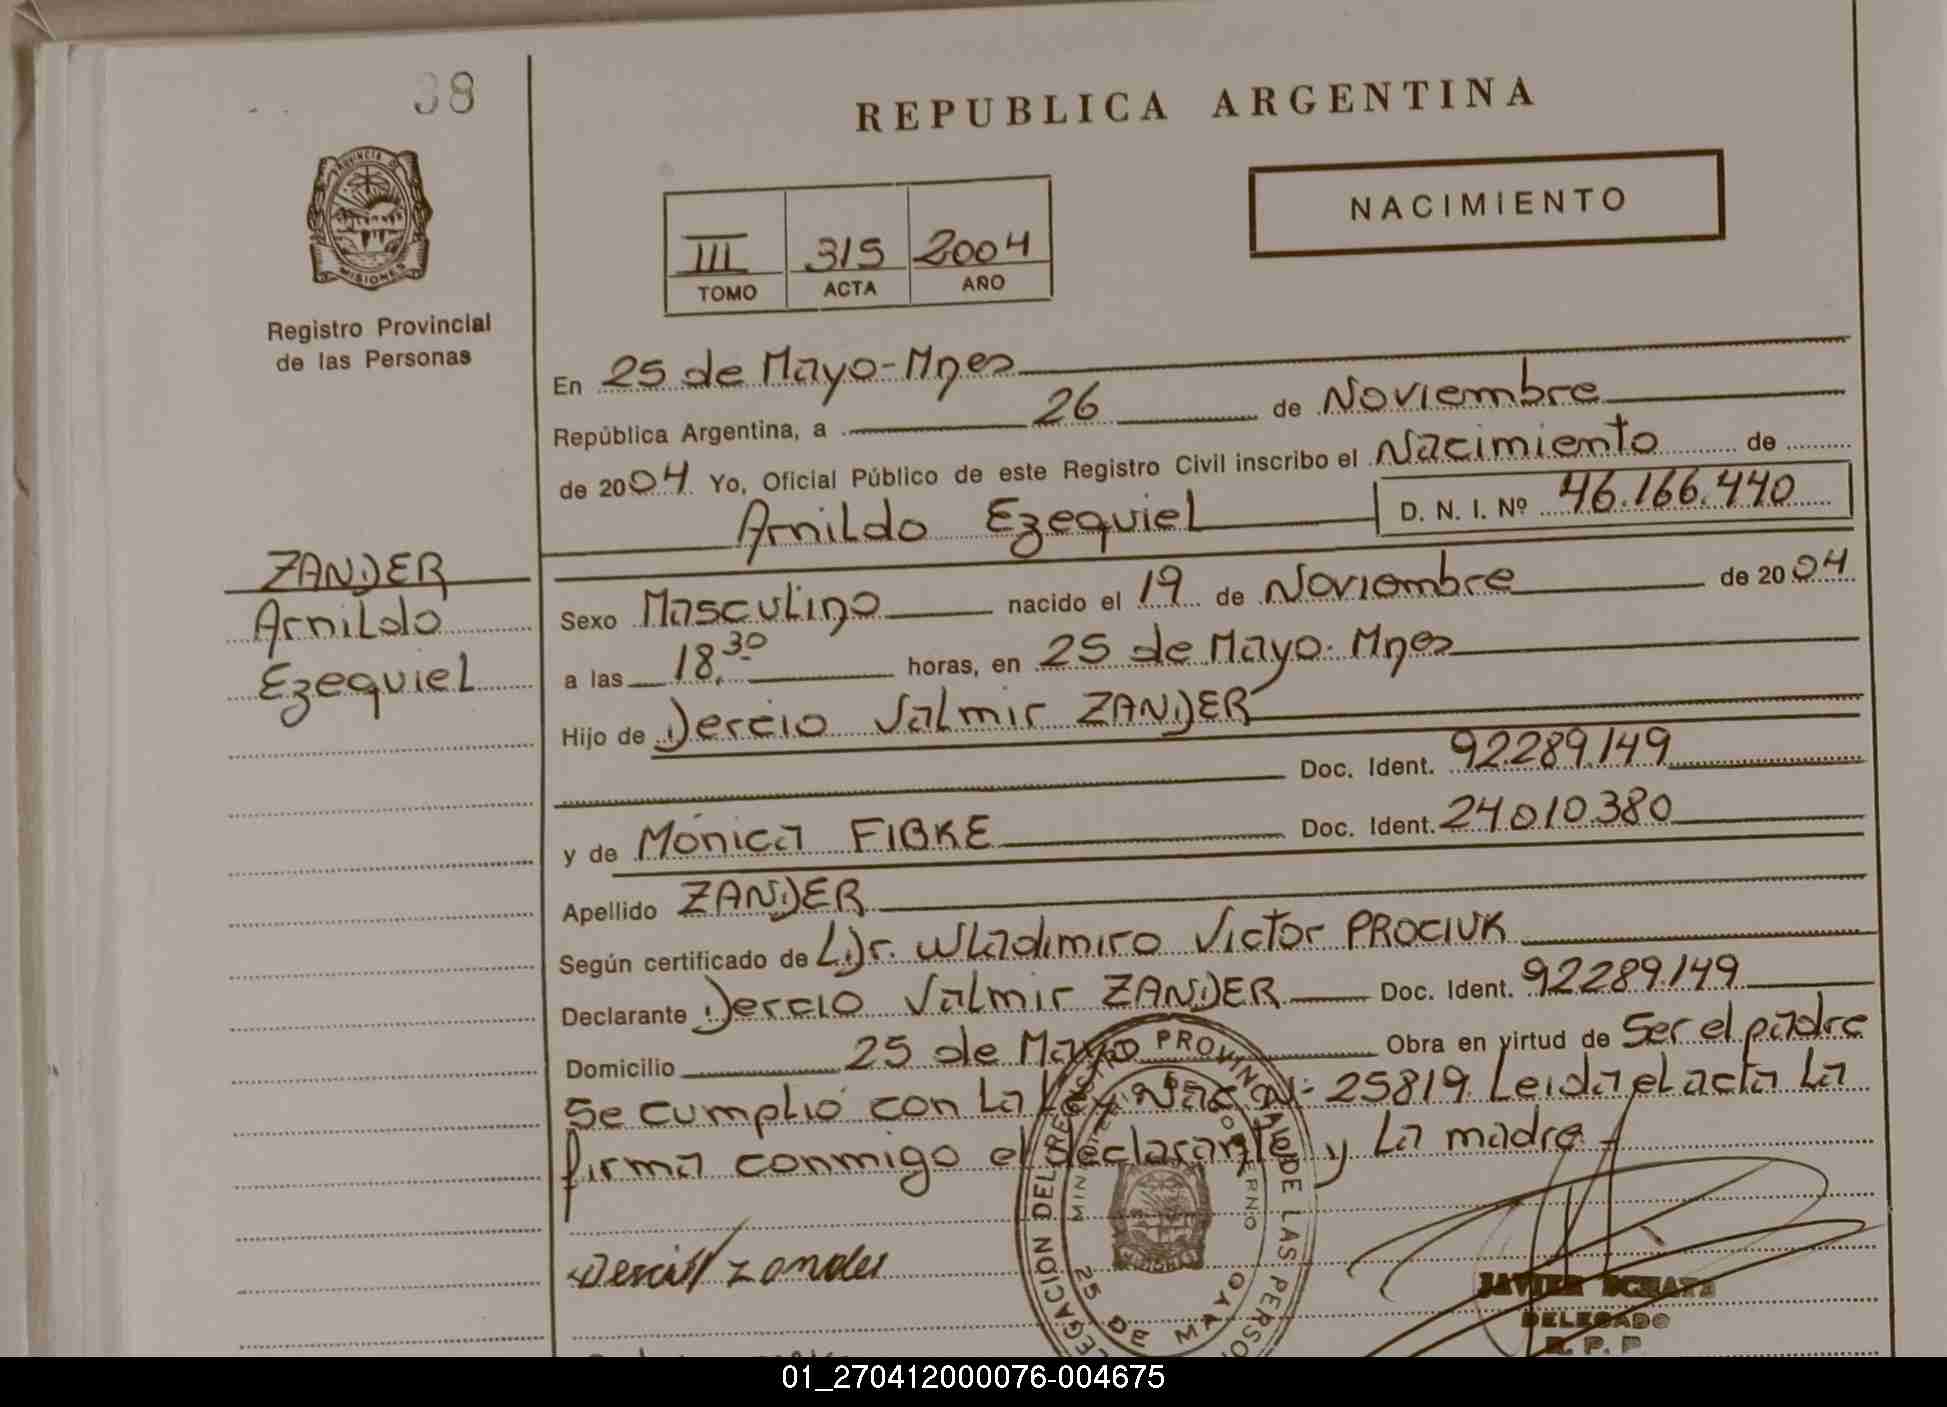 38
REPUBLICA ARGENTINA
NACIMIENTO
PROVINCIA DE
MISIONES
III 315 2004
TOMO ACTA AÑO
Registro Provincial
de las Personas
En 25 de Mayo-Mnes
República Argentina, a 26 de Noviembre
de 2004 Yo, Oficial Público de este Registro Civil inscribo el Nacimiento de
Arnildo Ezequiel D. N. I. Nº 46.166.440
ZANDER
Arnildo
Ezequiel
Sexo Masculino nacido el 19 de Noviembre de 2004
a las 18,30 horas, en 25 de Mayo-Mnes
Hijo de Dercio Valmir ZANDER
Doc. Ident. 92289.149
y de Mónica FIBKE Doc. Ident. 24010.380
Apellido ZANDER
Según certificado de Dr. Wladimiro Victor PROCIUK
Declarante Dercio Valmir ZANDER Doc. Ident. 92289.149
Domicilio 25 de Mayo Obra en virtud de Ser el padre
Se cumplió con la Ley Nac Nº 25819. Leida el acta la
firma conmigo el declarante y la madre.-
DELEGACION DEL REGISTRO PROVINCIAL DE LAS PERSO
25 DE MAYO
Zander
JAVIER
DELEGADO
R. P. P.
01_270412000076-004675